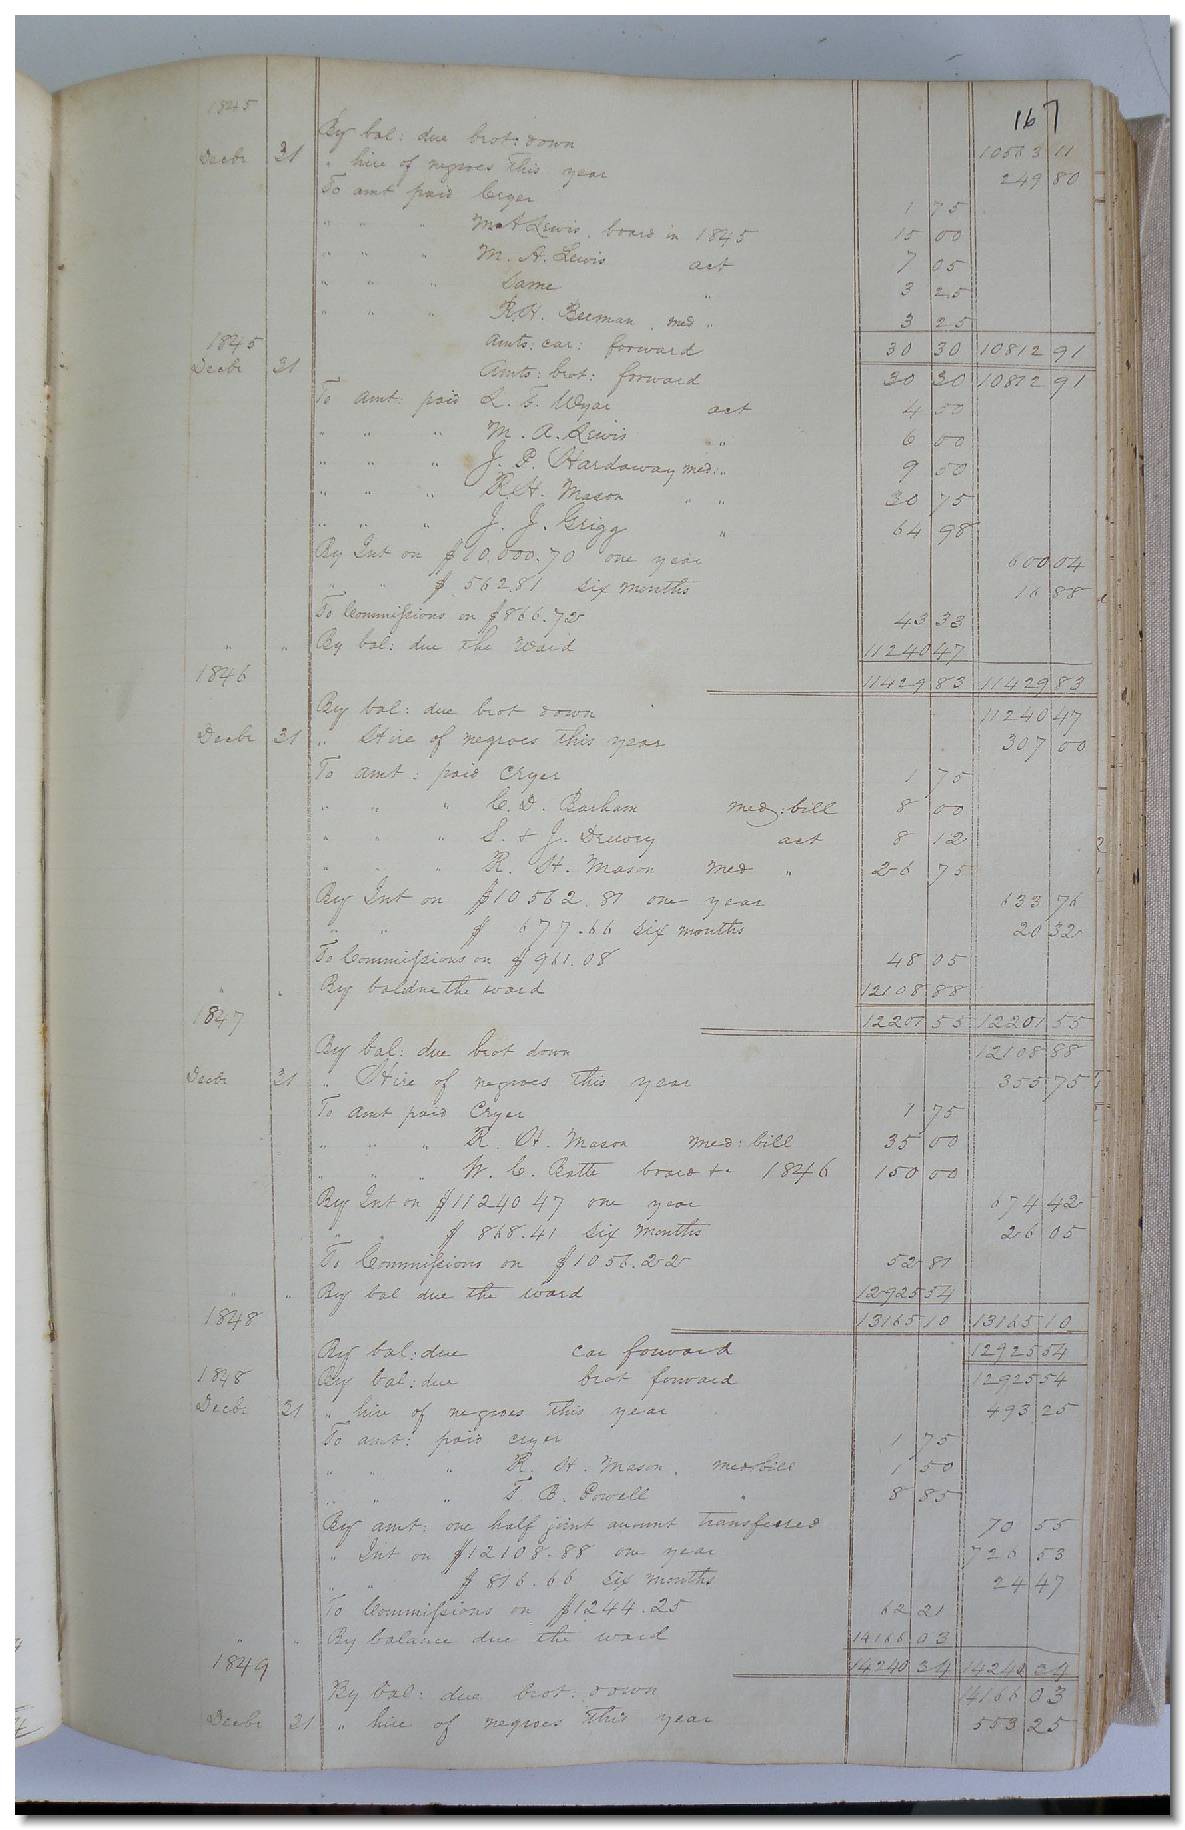 167
1845
By bal: due brot: down 10563 11
Decbr 31 " hire of negroes this year 249 80
To amt paid Cryer 1 75
" " " M A Lewis, board in 1845 15 00
" " " M. A. Lewis act 7 05
" " " Same " 3 25
" " " R.H. Beeman, med " 3 25
1845 Amts: car: forward 30 30 10812 91
Decbr 31 Amts: brot: forward 30 30 10812 91
To amt: paid L. F. Wyar act 4 50
" " " M. A. Lewis " 6 00
" " " J. P. Hardaway med: " 9 50
" " " R.H. Mason " " 30 75
" " " J. J. Grigg " 64 98
By Int on $10.000.70 one year 600 04
" " $ 562.81 six months 16 88
To Commissions on $866.72 43 33
" " By bal: due the Ward 11240 47
1846 11429 83 11429 83
By bal: due brot down 11240 47
Decbr 31 " Hire of negroes this year 307 00
To amt: paid Cryer 1 75
" " " C. D. Barham med: bill 8 00
" " " S. & J. Drewry act 8 12
" " " R. H. Mason med " 26 75
By Int on $10562.81 one year 633 76
" " $ 677.66 six months 20 32
To Commissions on $961.08 48 05
" " By bal due the ward 12108 88
1847 12201 55 12201 55
By bal: due brot down 12108 88
Decbr 31 " Hire of negroes this year 355 75
To amt paid Cryer 1 75
" " " R. H. Mason med: bill 35 00
" " " W. C. Batte board &c 1846 150 00
By Int on $11240 47 one year 674 42
" " $ 868.41 six months 26 05
To Commissions on $1056.22 52 81
" " By bal due the ward 12925 54
1848 13165 10 13165 10
By bal: due car forward 12925 54
1848 By bal: due brot forward 12925 54
Decbr 31 " hire of negroes this year 493 25
To amt: paid cryer 1 75
" " " R. H. Mason, med bill 1 50
" " " T. B. Powell " 8 85
By amt: one half joint amount transferred 70 55
" Int on $12108.88 one year 726 53
" " $ 816.66 six months 24 47
To Commissions on $1244.25 62 21
" " By balance due the ward 14166 03
1849 14240 34 14240 34
By bal: due brot: down 14166 03
Decbr 31 " hire of negroes this year 553 25